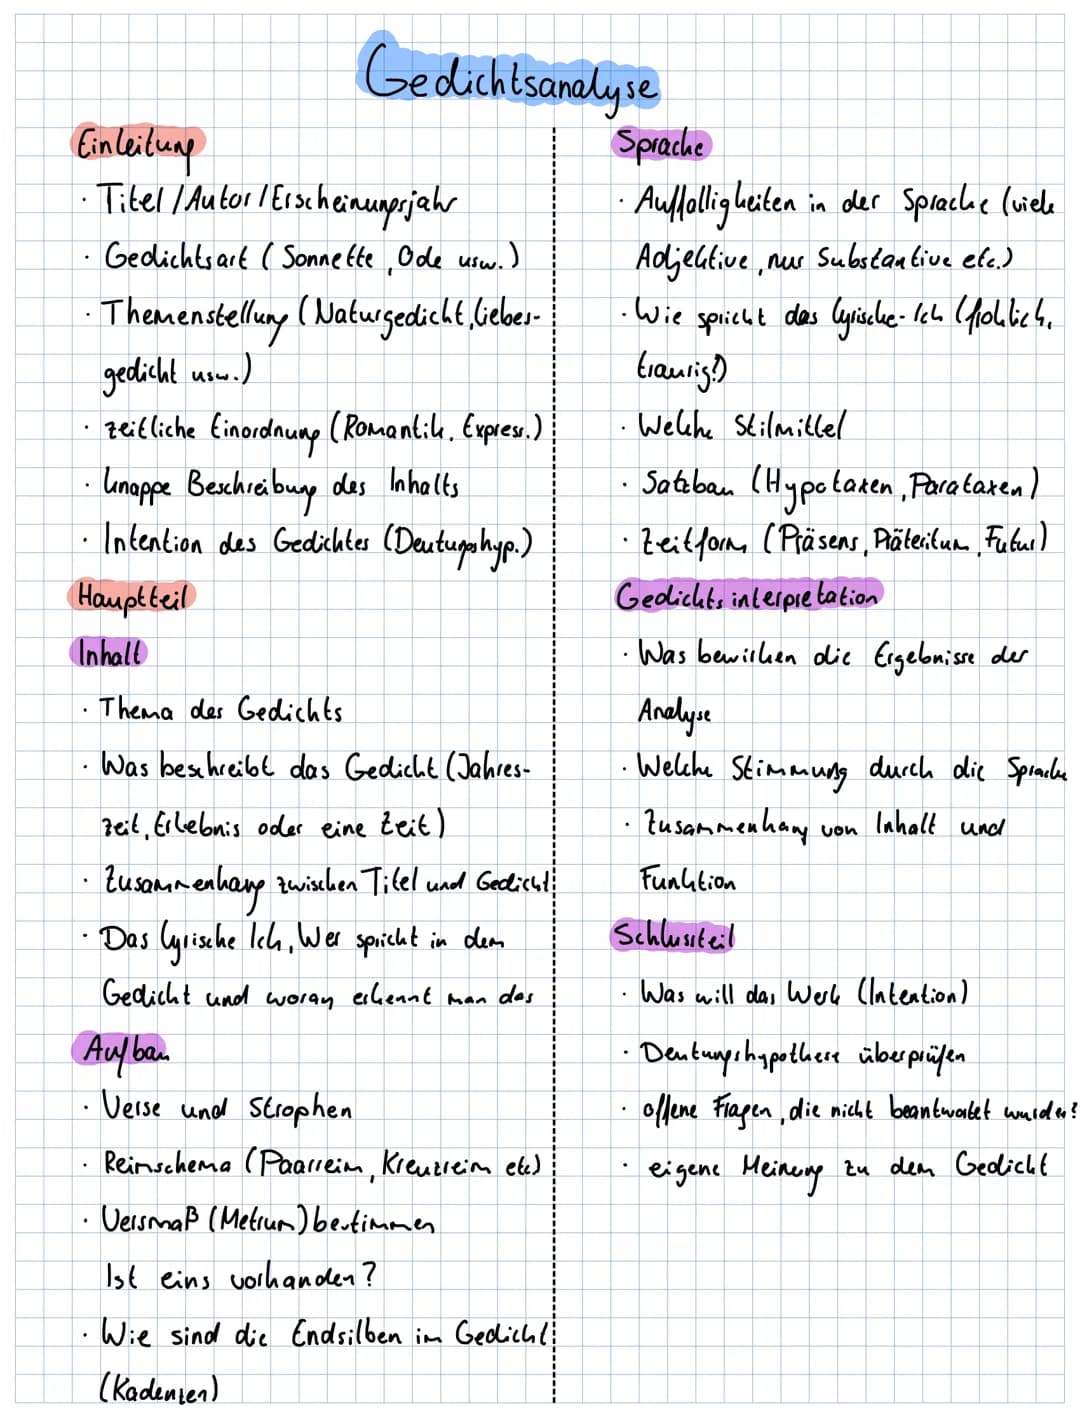 Gedichtsanalyse
Einleitung
· Titel / Autor / Erscheinungsjahr
· Gedichtsart ( Sonnette , Ode usw. )
· Themenstellung ( Naturgedicht, Liebes-
gedicht usw. )
· zeitliche Einordnung ( Romantik, Express. )
· knappe Beschreibung des Inhalts
· Intention des Gedichtes ( Deutungshyp. )
Hauptteil
Inhalt
· Thema des Gedichts
· Was beschreibt das Gedicht ( Jahres-
zeit, Erlebnis oder eine Zeit )
· Zusammenhang zwischen Titel und Gedicht
· Das lyrische Ich, Wer spricht in dem
Gedicht und woran erkennt man das
Aufbau
· Verse und Strophen
· Reimschema ( Paarreim, Kreuzreim etc )
· Versmaß ( Metrum ) bestimmen
Ist eins vorhanden ?
· Wie sind die Endsilben im Gedicht
( Kadenzen )
Sprache
· Auffälligkeiten in der Sprache ( viele
Adjektive , nur Substantive etc. )
· Wie spricht das lyrische-Ich ( fröhlich,
traurig? )
· Welche Stilmittel
· Satzbau ( Hypotaxen , Parataxen )
· Zeitform ( Präsens , Präteritum , Futur )
Gedichtsinterpretation
· Was bewirken die Ergebnisse der
Analyse
· Welche Stimmung durch die Sprache
· Zusammenhang von Inhalt und
Funktion
Schlussteil
· Was will das Werk ( Intention )
· Deutungshypothese überprüfen
· offene Fragen , die nicht beantwortet wurden?
· eigene Meinung zu dem Gedicht